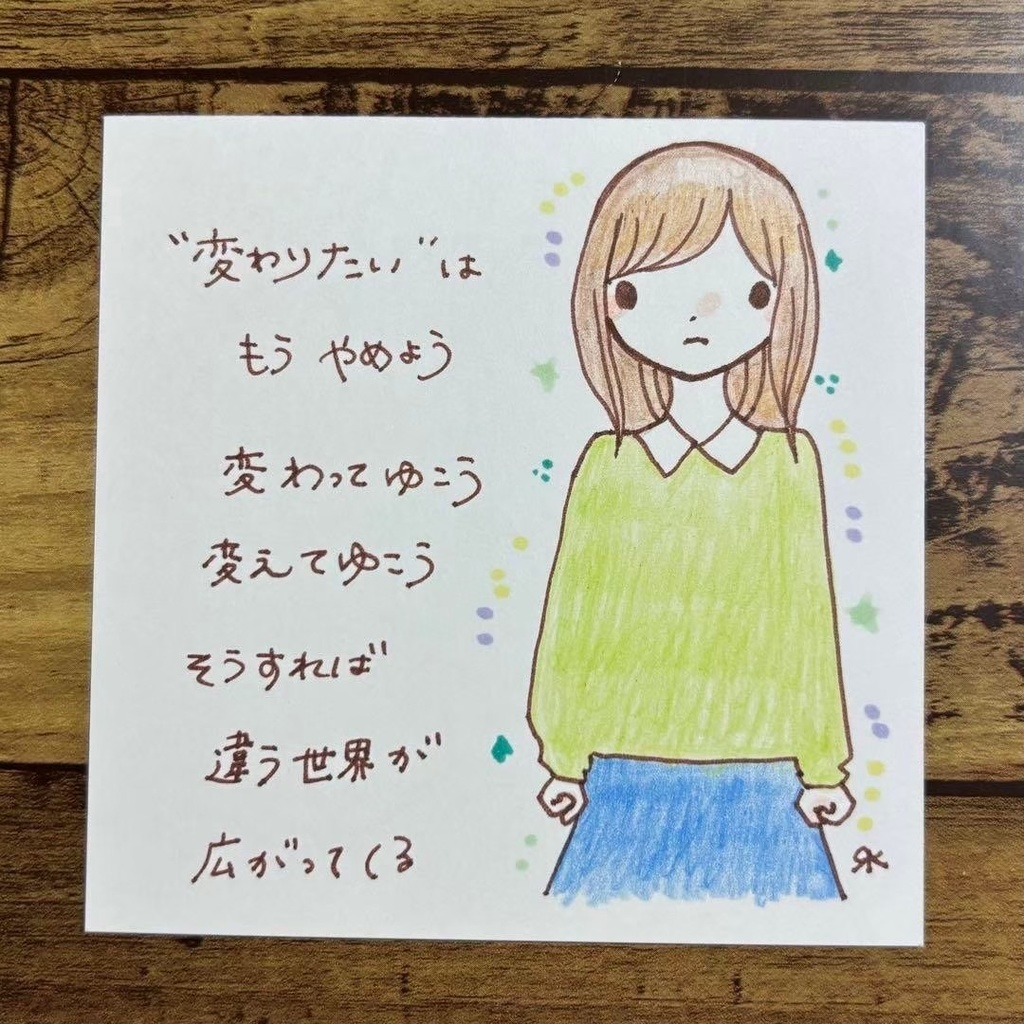 "変わりたい"は
もう やめよう
変わってゆこう
変えてゆこう
そうすれば
違う世界が
広がってくる